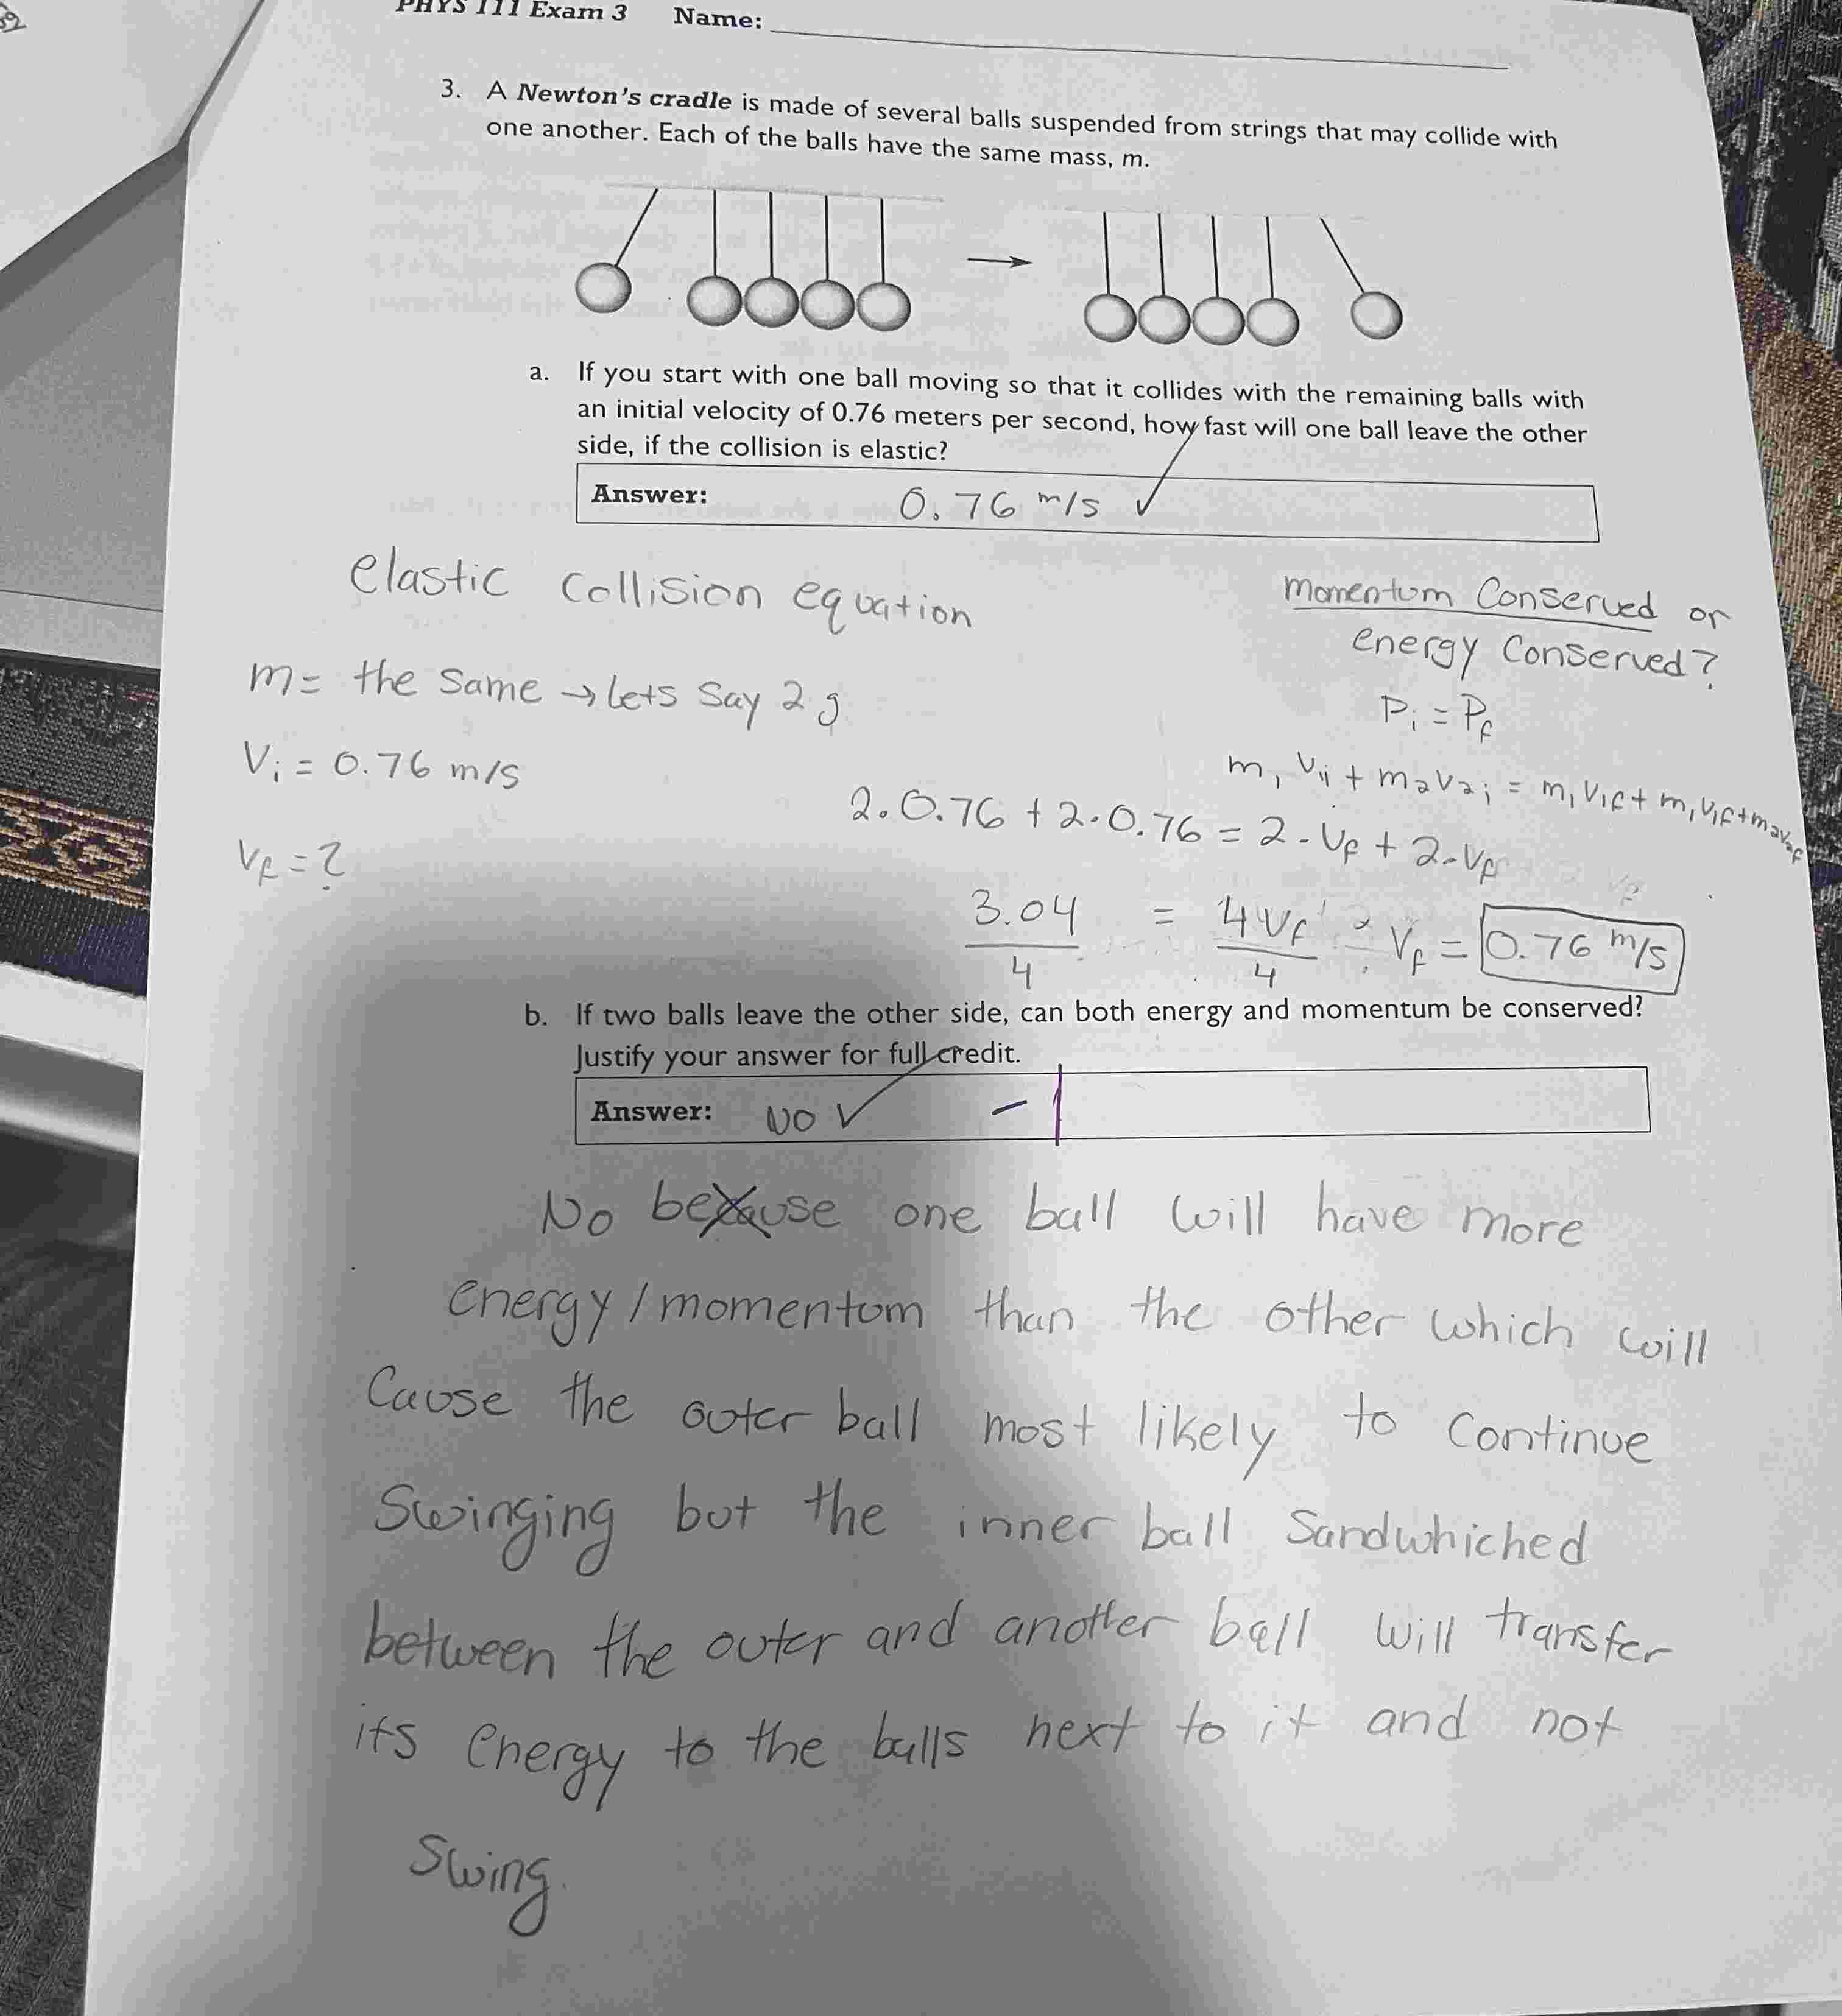 PHYS 111 Exam 3 Name:
3. A Newton's cradle is made of several balls suspended from strings that may collide with
one another. Each of the balls have the same mass, m.
a. If you start with one ball moving so that it collides with the remaining balls with
an initial velocity of 0.76 meters per second, how fast will one ball leave the other
side, if the collision is elastic?
Answer: 0.76 m/s ✓
elastic collision equation
momentum conserved or
energy conserved?
m = the same → lets say 2 g
Pi = Pf
Vi = 0.76 m/s
m1 v1i + m2v2i = m1v1f + m1v1f + m2v2f
2.0.76 + 2.0.76 = 2 - vf + 2 - vf
Vf = ?
3.04/4 = 4vf/4 Vf = 0.76 m/s
b. If two balls leave the other side, can both energy and momentum be conserved?
Justify your answer for full credit.
Answer: NO ✓ -1
No because one ball will have more
energy / momentum than the other which will
Cause the outer ball most likely to continue
Swinging but the inner ball Sandwhiched
between the outer and another ball will transfer
its energy to the balls next to it and not
Swing.